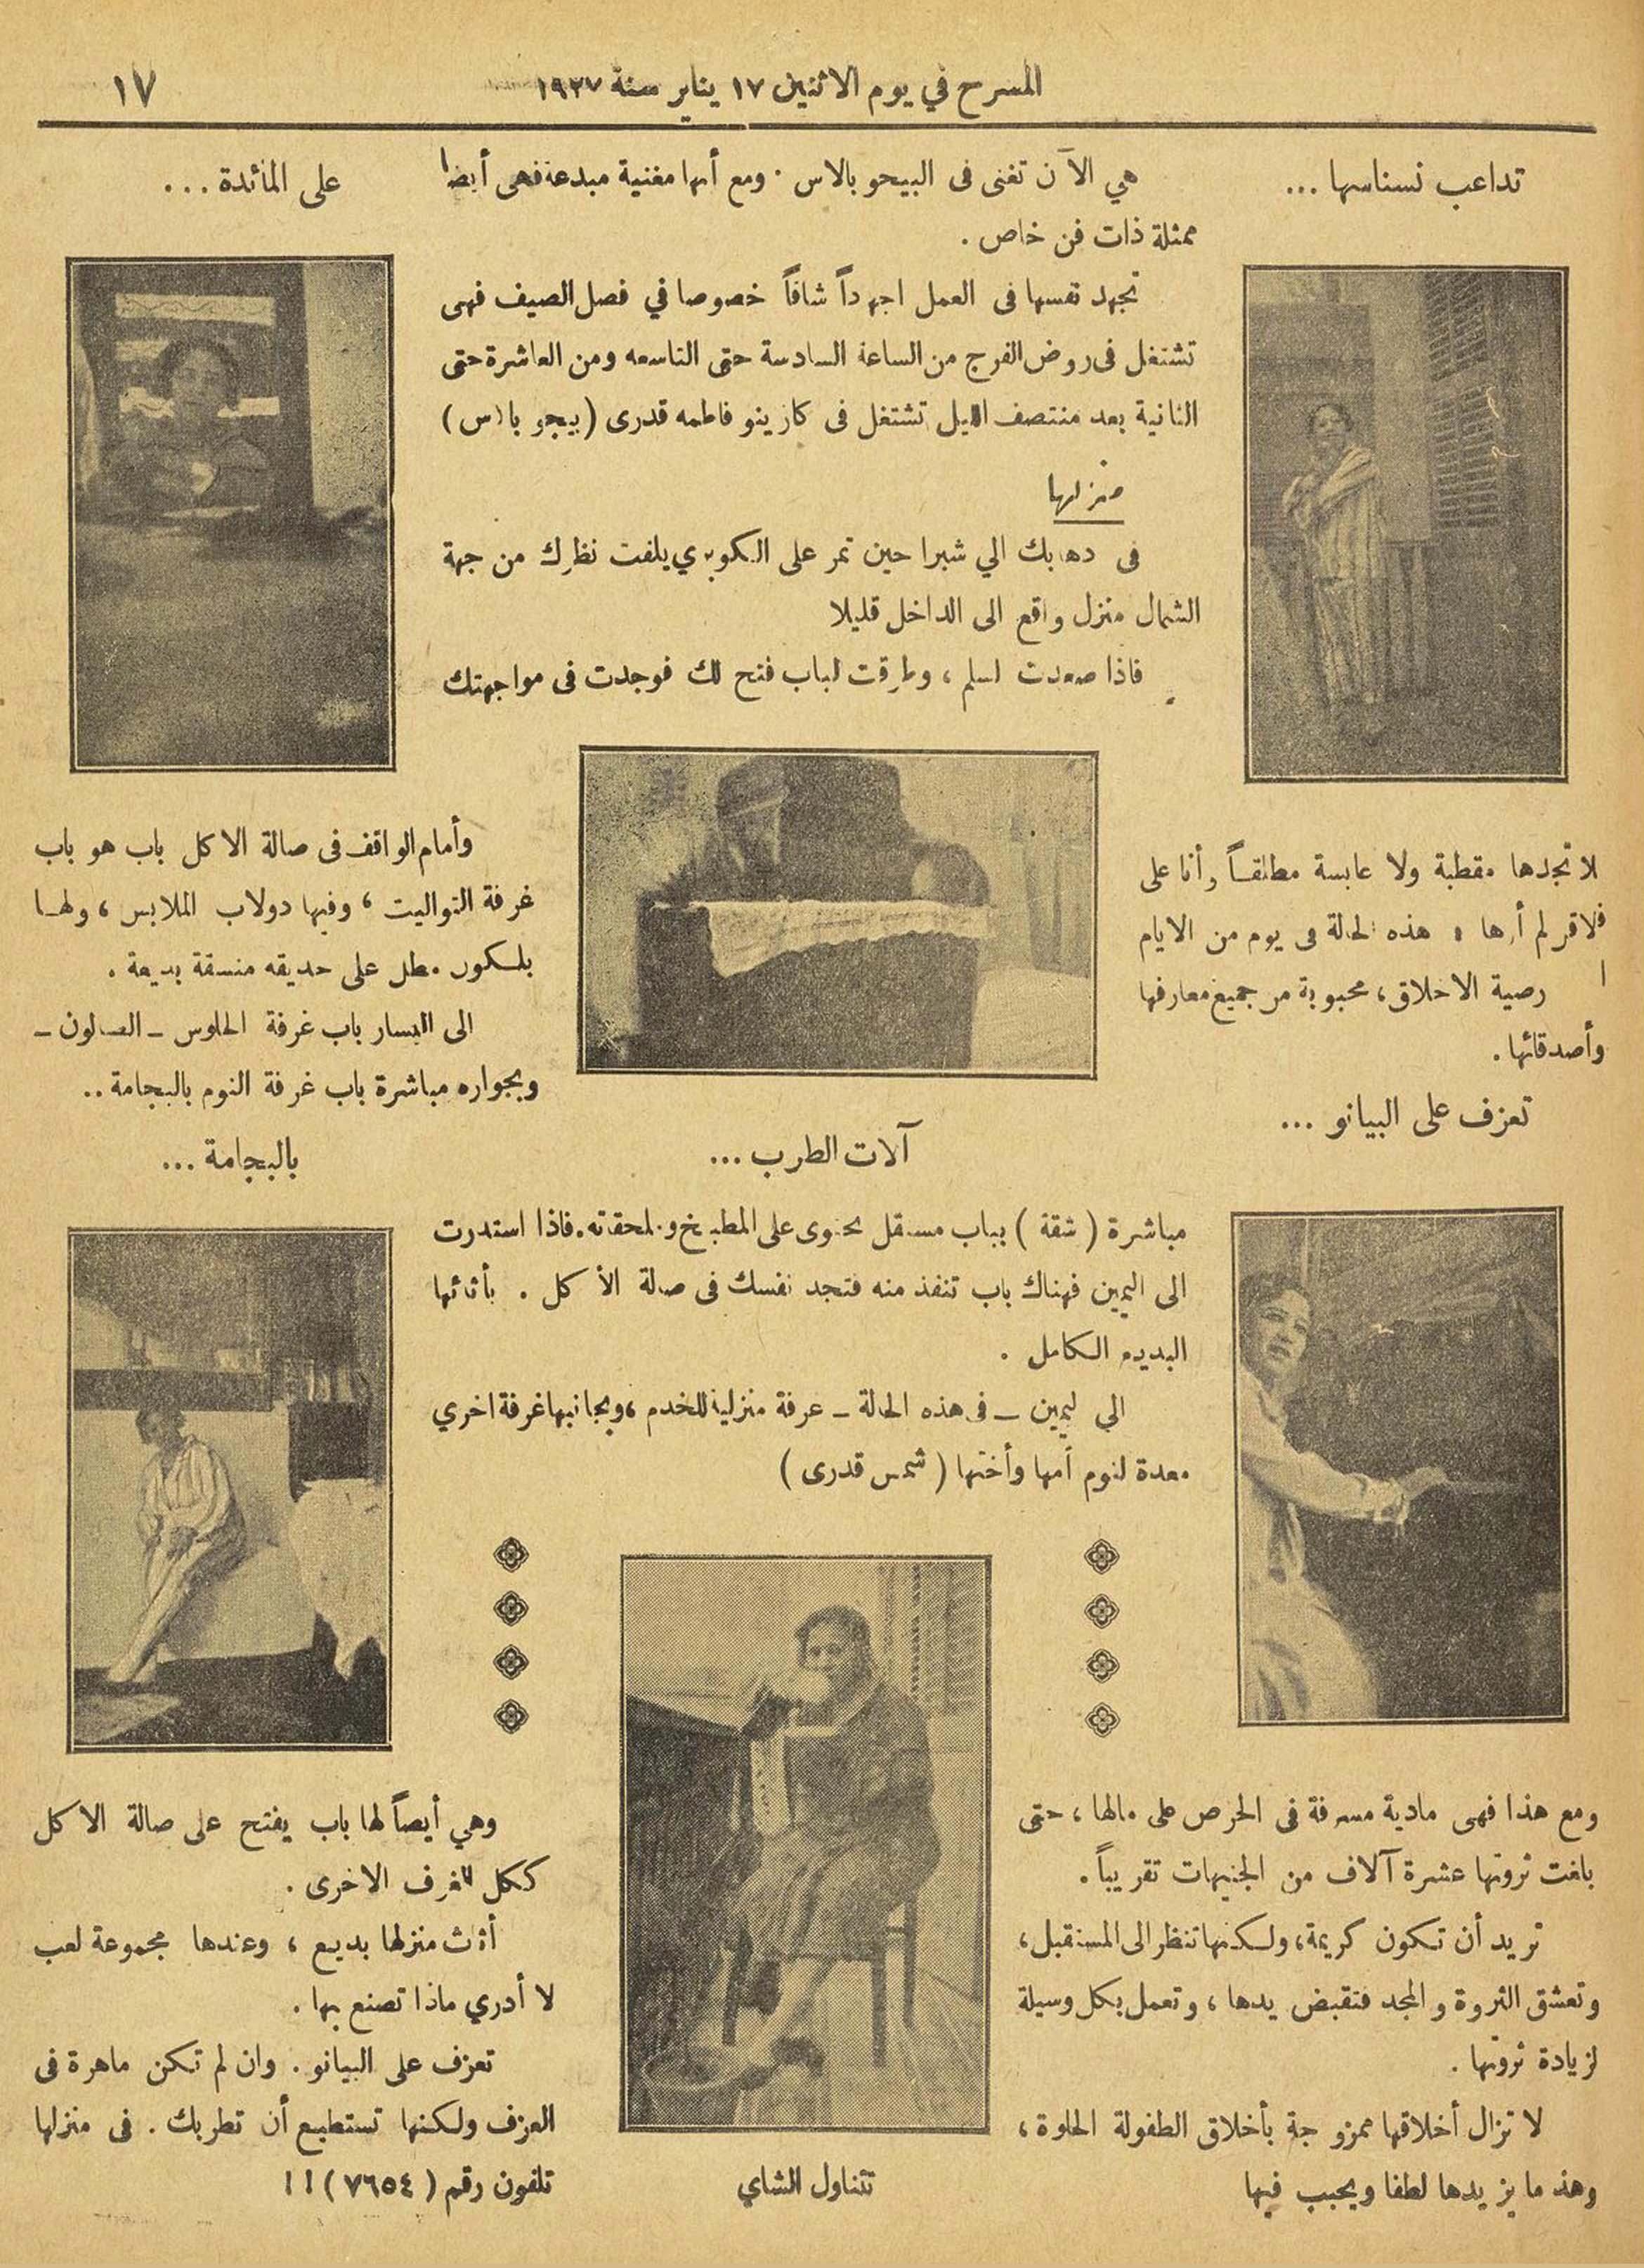 المسرح في يوم الاثنين ١٧ يناير سنة ١٩٢٧
١٧
تداعب نسناسها ...
هي الآن تغنى فى البيجو بالاس . ومع أنها مغنية مبدعة فهى أيضا
ممثلة ذات فن خاص .
تجهد نفسها فى العمل اجهداً شاقاً خصوصا في فصل الصيف فهى
تشتغل فى روض الفرج من الساعة السادسة حتى التاسعه ومن العاشرة حتى
الثانية بعد منتصف الليل تشتغل فى كازينو فاطمه قدرى (بيجو بالاس)
منزلها
فى دهابك الي شبرا حين تمر على الكوبري يلفت نظرك من جهة
الشمال منزل واقع الى الداخل قليلا
فاذا صعدت السلم ، وطرقت الباب فتح لك فوجدت فى مواجهتك
على المائدة ...
لا تجدها مقطبة ولا عابسة مطلقـاً وأنا على
هذه الحالة فى يوم من الايام
رضية الاخلاق ، محبوبة من جميع معارفها
وأصدقائها .
تعزف على البيانو ...
آلات الطرب ...
مباشرة ( شقة ) بباب مستقل يحتوى على المطبخ و.لحقاته . فاذا استدرت
الى اليمين فهناك باب تنفذ منه فتجد نفسك فى صالة الأكل . بأثاثها
البديع الكامل .
الي اليمين ــ فى هذه الحالة ــ غرفة منزلية للخدم ، وبجانبها غرفة اخري
معدة لنوم أمها وأختها ( شمس قدرى )
وأمام الواقف فى صالة الاكل باب هو باب
غرفة التواليت ، وفيها دولاب الملابس ، ولهـا
بلـكون مطل على حديقه منسقة بديعة .
الى اليسار باب غرفة الجلوس ــ الصـالون ــ
وبجواره مباشرة باب غرفة النوم بالبجامة ..
بالبجامة ...
ومع هذا فهى مادية مسرفة فى الحرص على مالها ، حتى
بلغت ثروتها عشرة آلاف من الجنيهات تقريباً .
تريد أن تـكون كريمة ، ولـكنها تنظر الى المستقبل ،
وتعشق الثروة و المجد فتقبض يدها ، وتعمل بكل وسيلة
لزيادة ثروتها .
لا تزال أخلاقها ممزوجة بأخلاق الطفولة الحلوة ،
وهذ ما يزيدها لطفا ويحبب فيها
تتناول الشاي
وهي أيضاً لها باب يفتح على صالة الاكل
ككل الغرف الاخرى .
أثاث منزلها بديع ، وعندها مجموعة لعب
لا أدري ماذا تصنع بها .
تعزف على البيانو . وان لم تـكن ماهرة فى
العزف ولكنها تستطيع أن تطربك . فى منزلها
تلفون رقم ( ٧٦٥٤ ) ! !